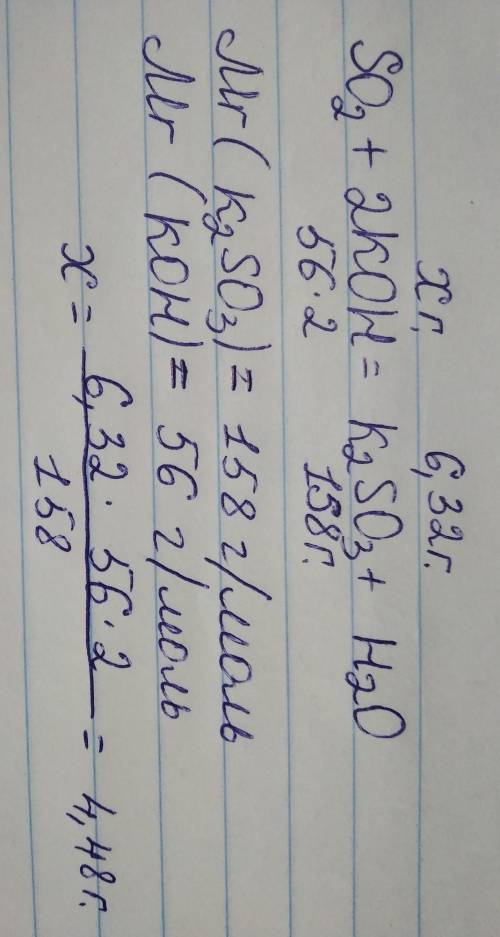 x г, 6,32 г.
SO₂ + 2KOH = K₂SO₃ + H₂O
56·2 158 г.
Mr (K₂SO₃) = 158 г/моль
Mr (KOH) = 56 г/моль
x = 6,32 · 56·2 / 158 = 4,48 г.